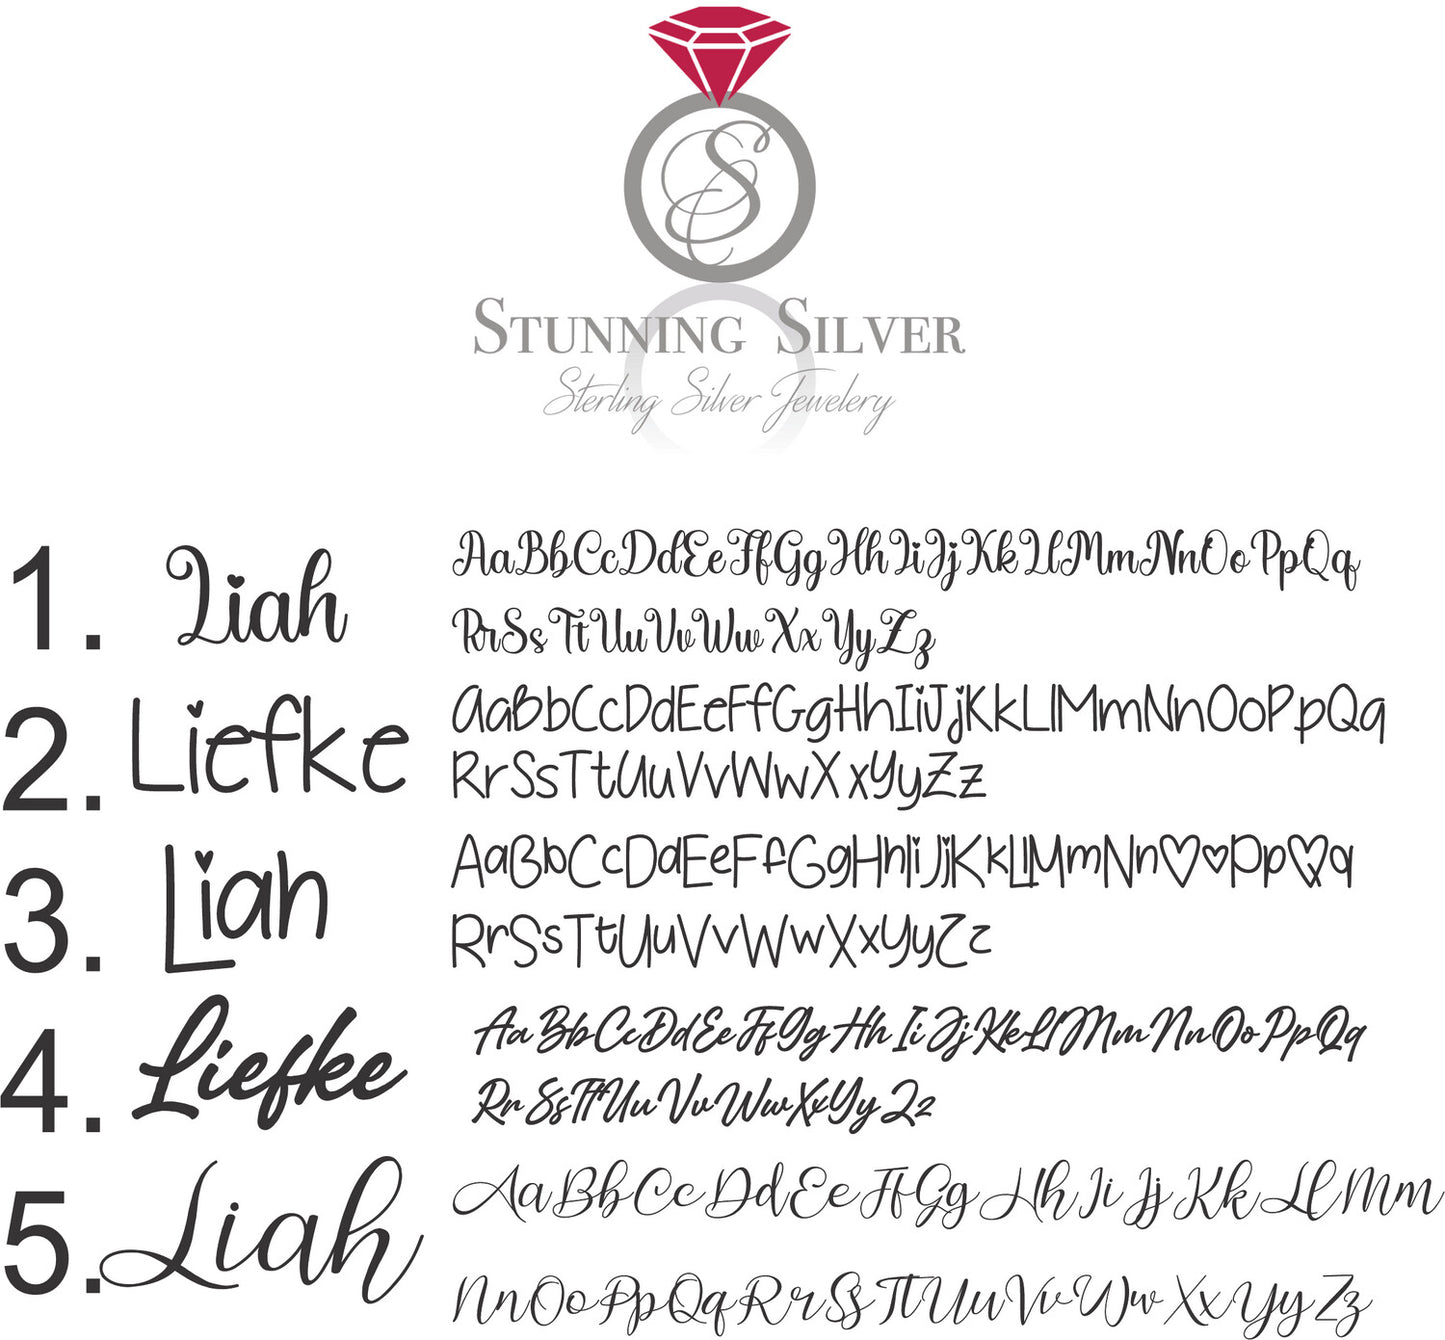 STUNNING SILVER
Sterling Silver Jewelery
1. Liah
AaBbCcDdEeFfGgHhIiJjKkLlMmNnOoPpQq
RrSsTtUuVvWwXxYyZz
2. Liefke
AaBbCcDdEeFfGgHhIiJjKkLlMmNnOoPpQq
RrSsTtUuVvWwXxYyZz
3. Liah
AaBbCcDdEeFfGgHhIiJjKkLlMmNnOoPpQq
RrSsTtUuVvWwXxYyZz
4. Liefke
AaBbCcDdEeFfGgHhIiJjKkLlMmNnOoPpQq
RrSsTtUuVvWwXxYyZz
5. Liah
AaBbCcDdEeFfGgHhIiJjKkLlMm
NnOoPpQqRrSsTtUuVvWwXxYyZz